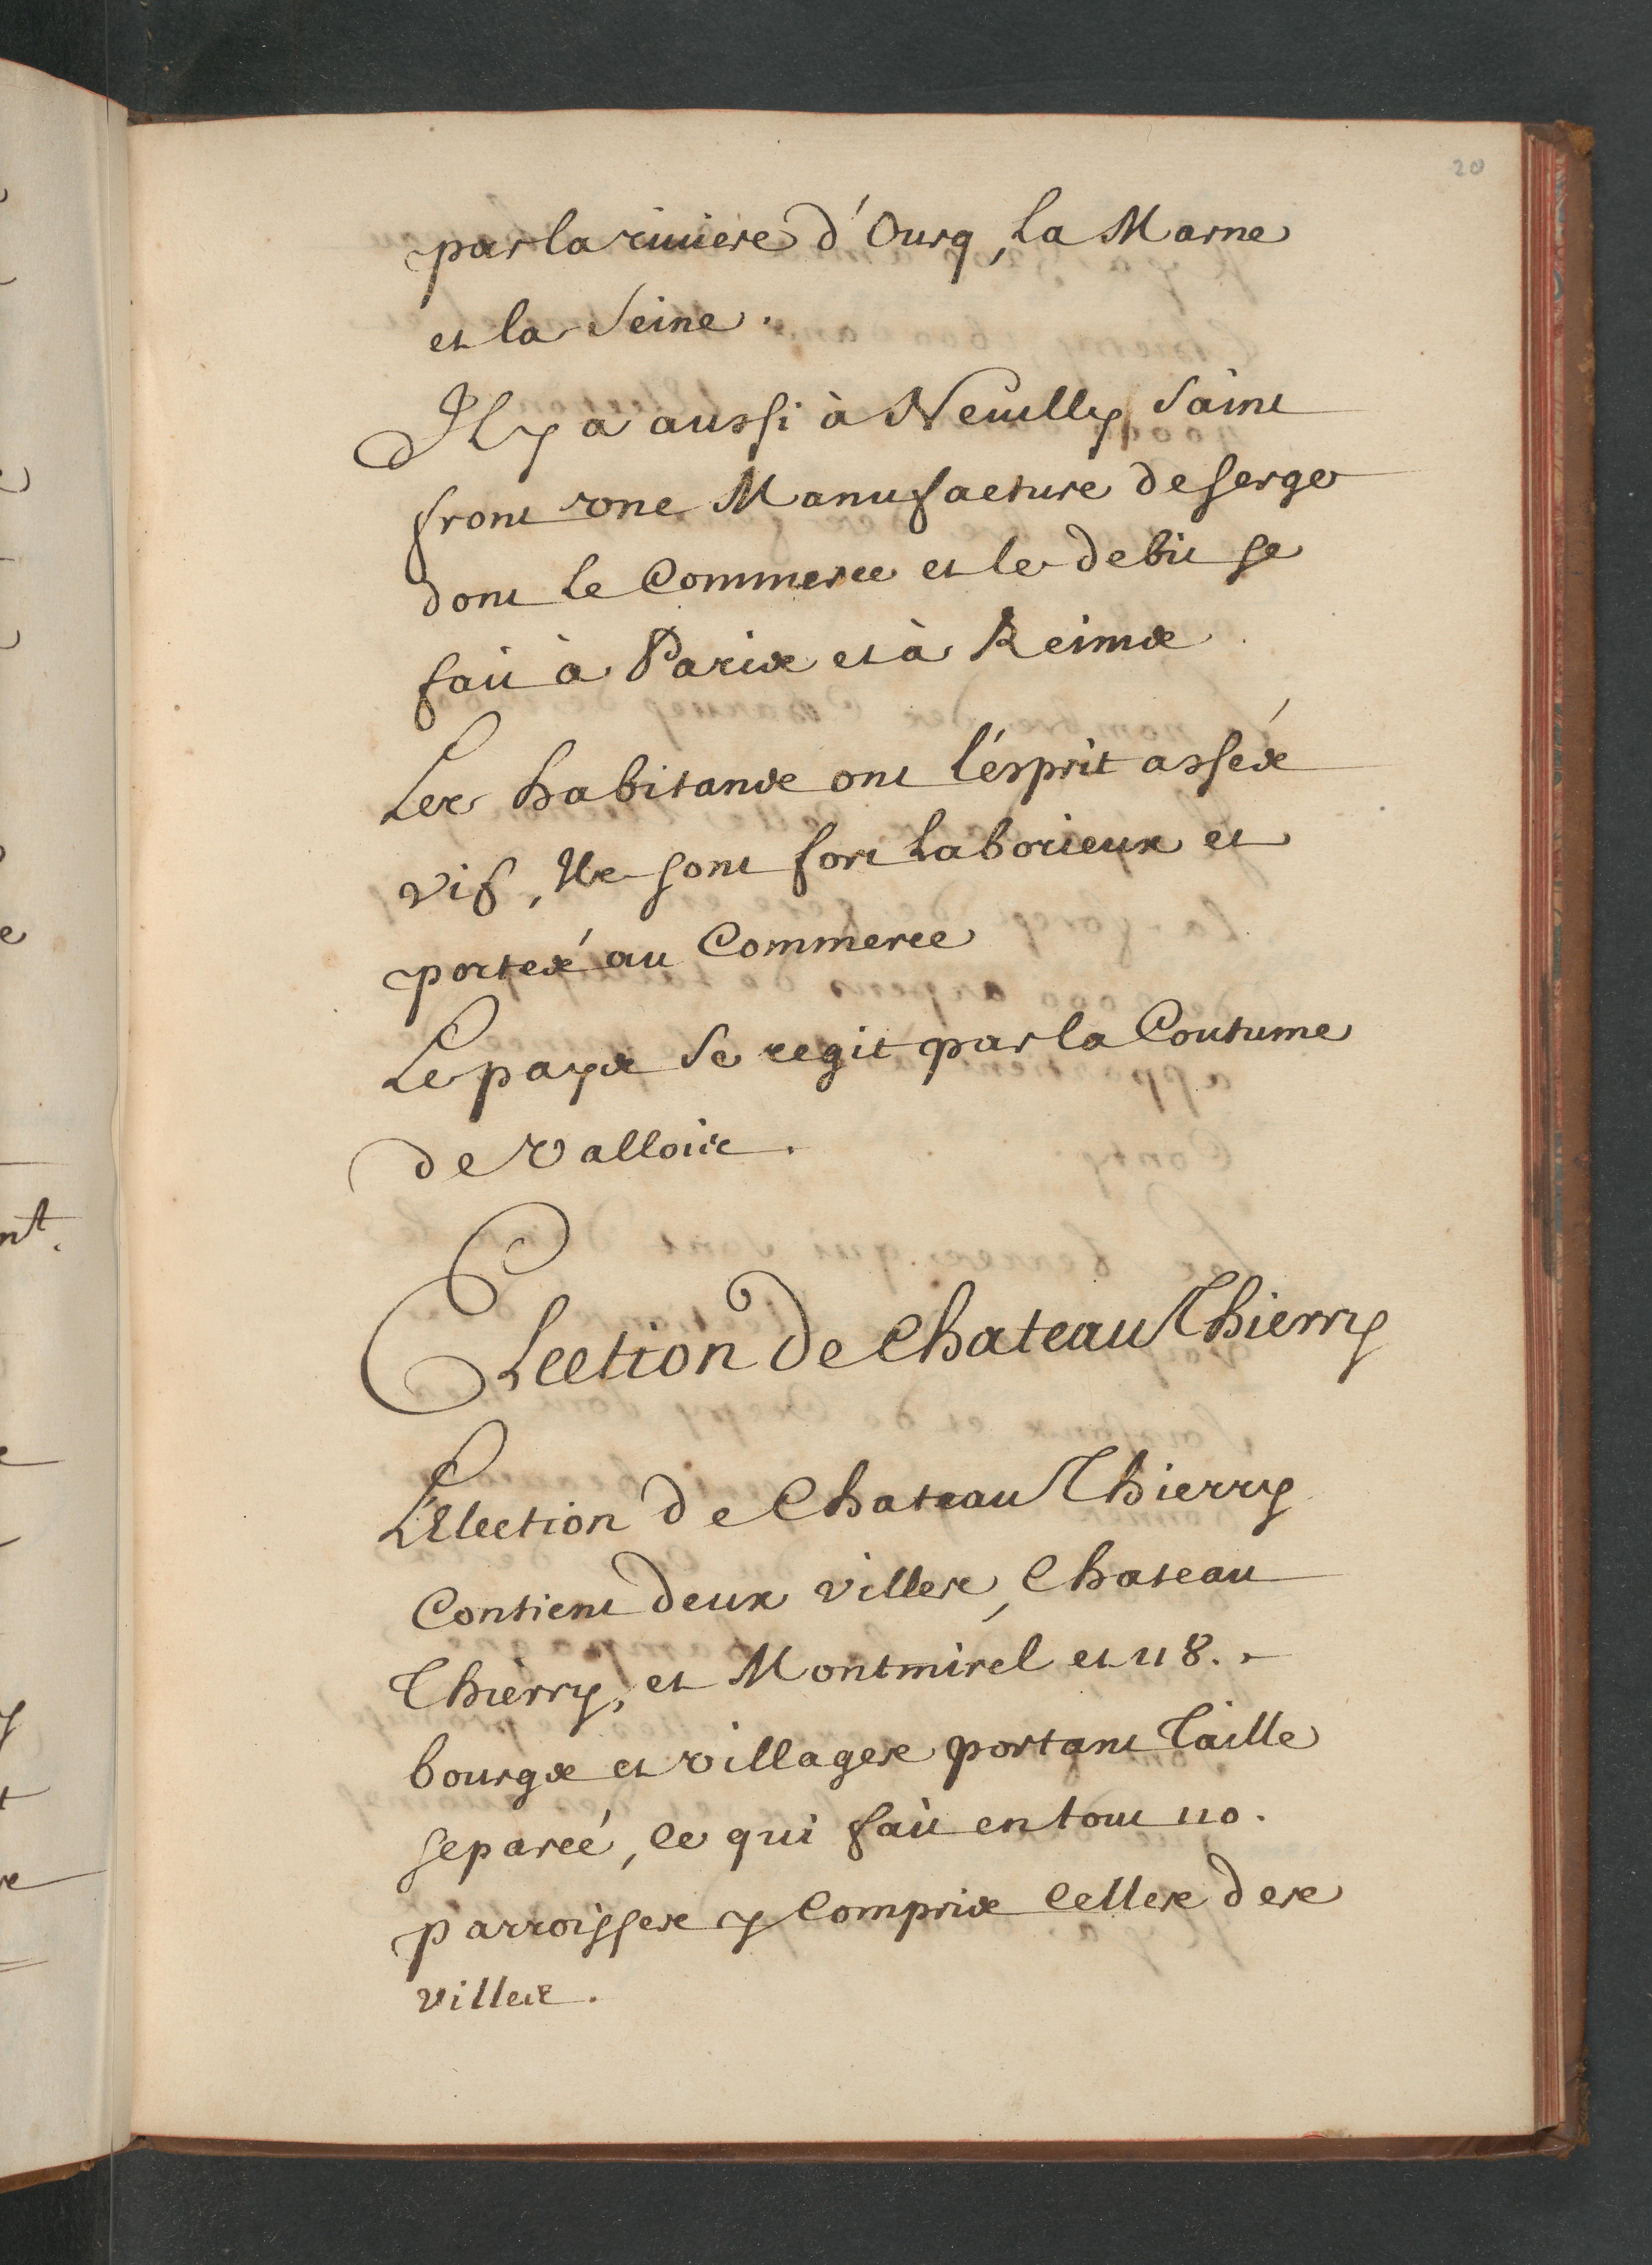 20
par la riuiere d'Ourq, la Marne
et la Seine.
Il y a aussi à Neuilly Saint
front une Manufacture de serge
dont le Commerce et le debit se
fait à Paris et à Reims
Les habitans ont l'ésprit assés
vif, Ils sont fort laborieux et
portés au Commerce
Le pays se regit par la Coutume
de Vallois.
Election de Chateau Thierry
L'Election de Chateau Thierry
Contient deux villes, Chateau
Thierry, et Montmirel et 118.
bourgs et villages portant Taille
separeé, ce qui fait en tout 110.
parroisses y Compris Celles des
villes.